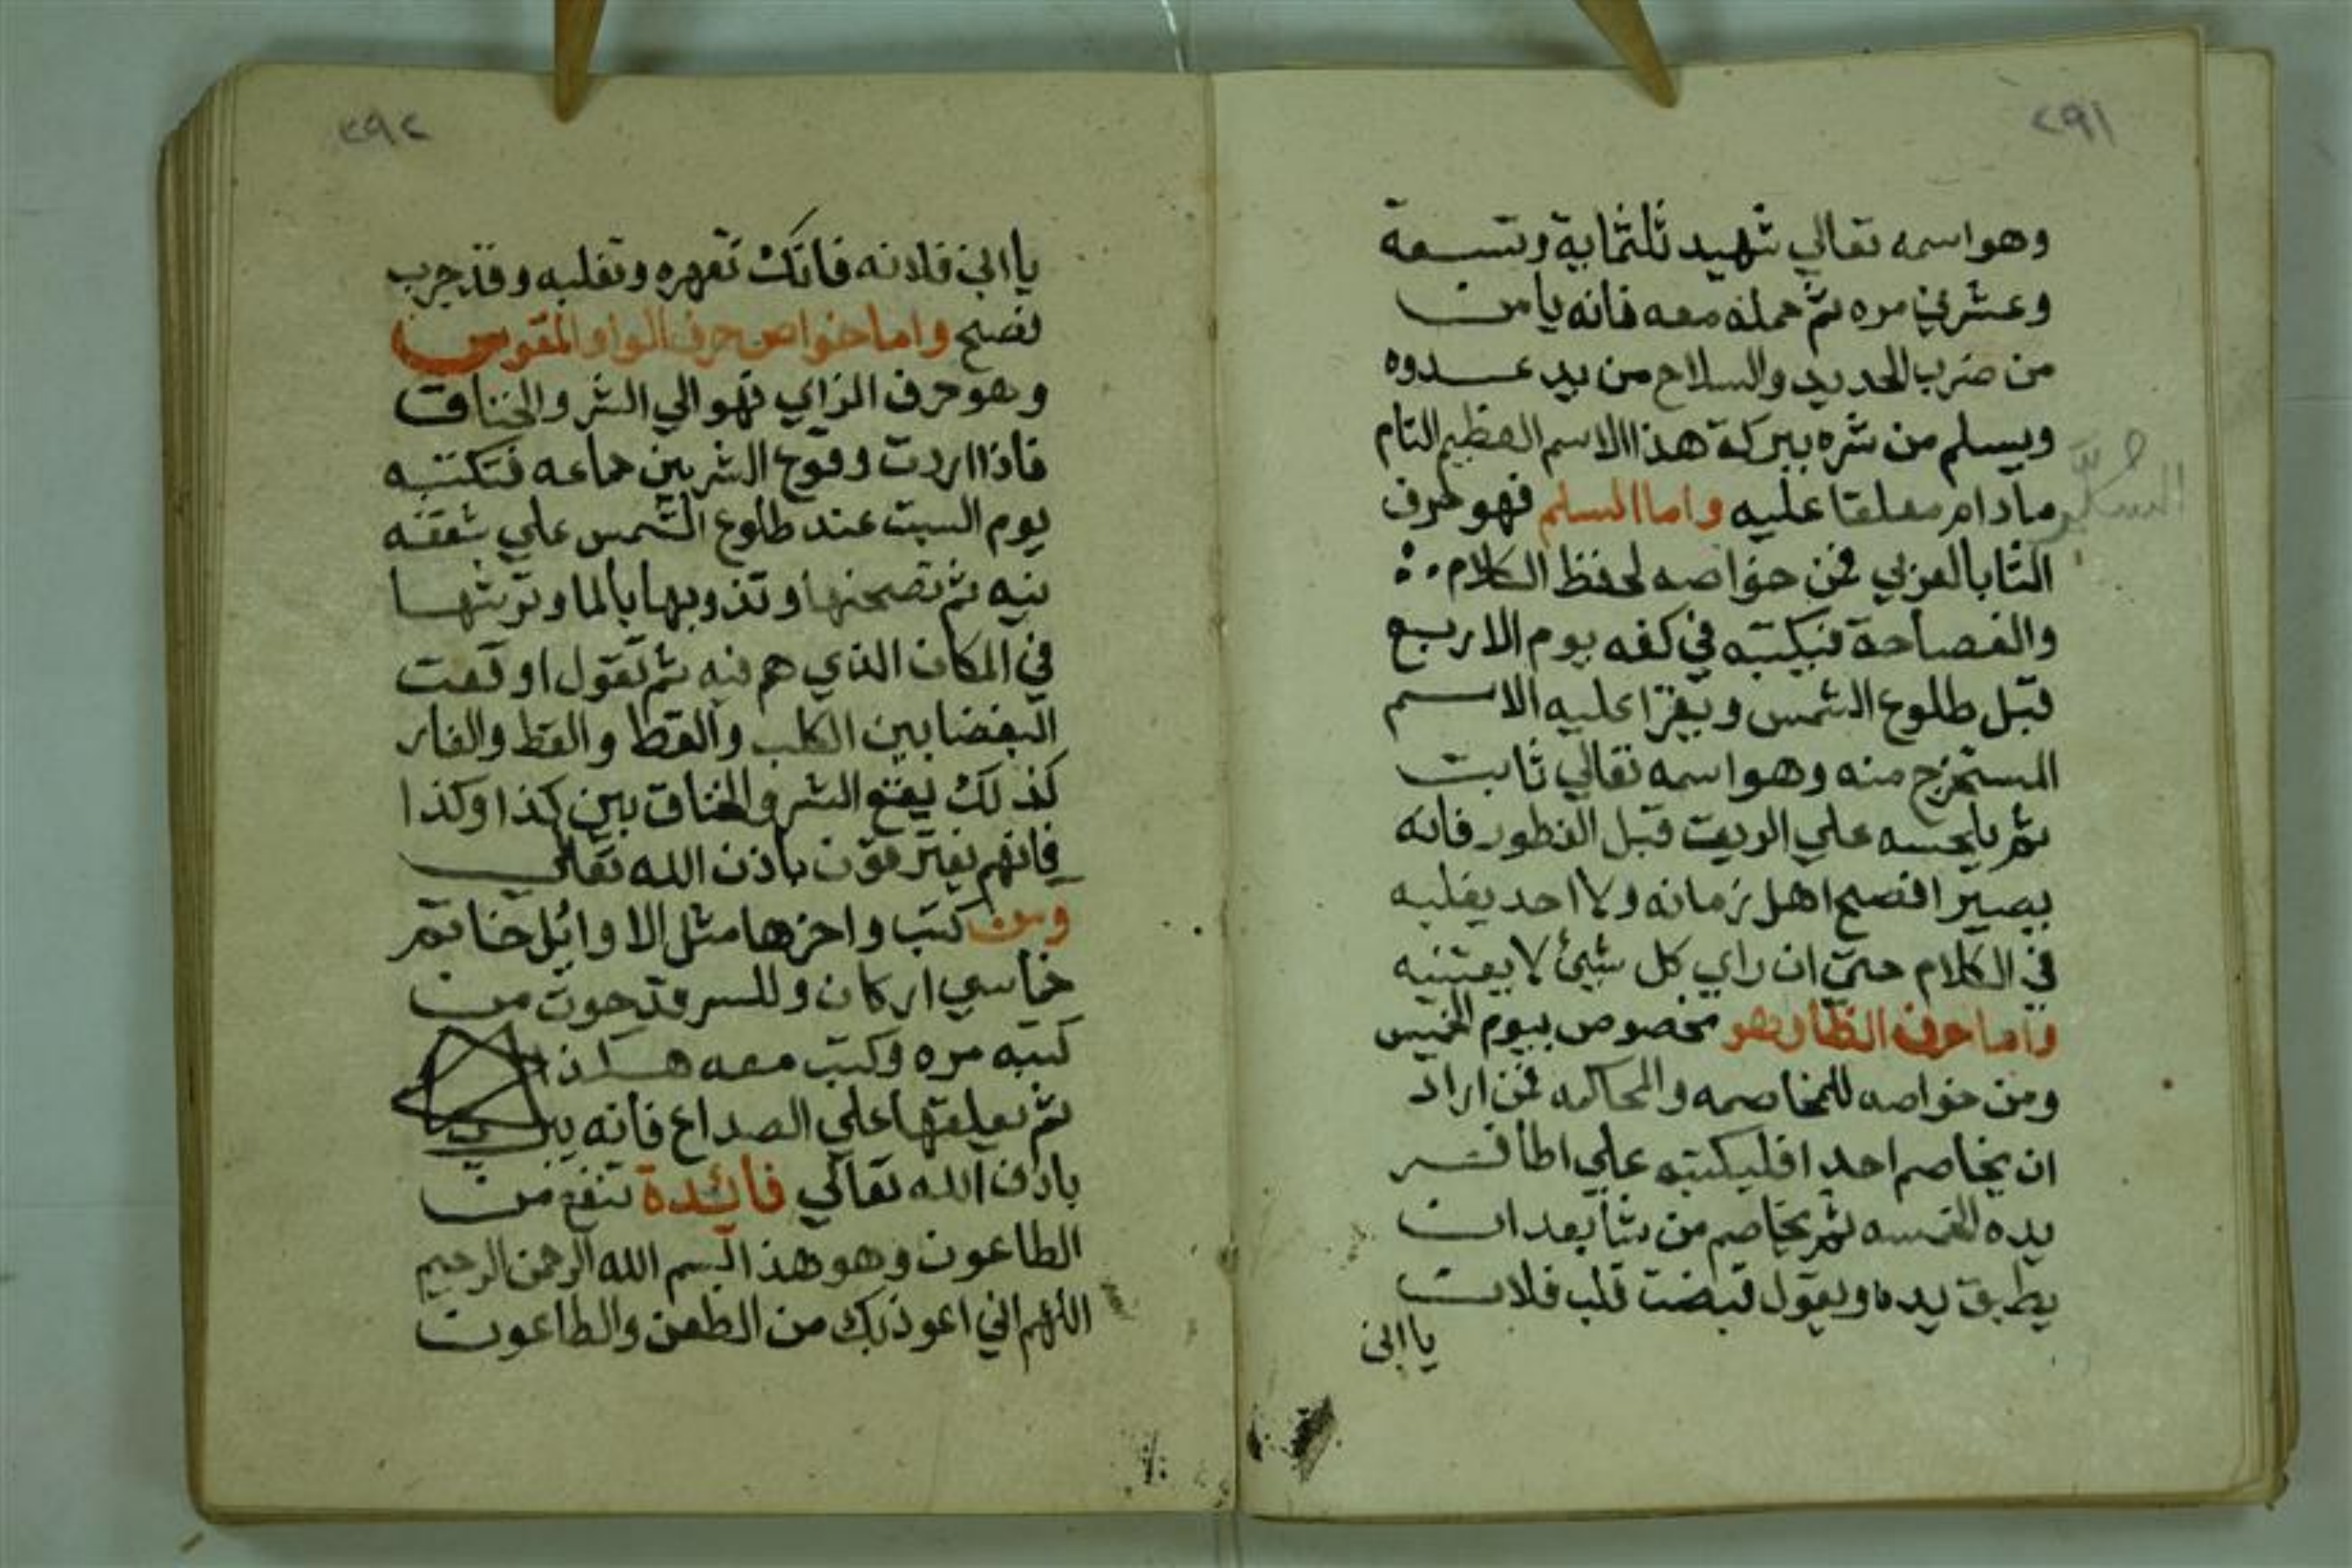 ٢٩١
وهو اسمه تعالي شهيد ثلثماية وتسعة
وعشرين مره ثم حمله معه فانه يامن
من ضرب الحديد والسلاح من يد عدوه
ويسلم من شره ببركة هذا الاسم العظيم التام
مادام معلقا عليه واما السلم فهو حرف
الثا بالعربي فمن خواصه لحفظ الكلام
والفصاحة فيكتبه في كفه يوم الاربع
قبل طلوع الشمس ويقرا عليه الاسم
المستخرج منه وهو اسمه تعالي ثابت
ثم يلحسه علي الريق قبل الفطور فانه
يصير افصح اهل زمانه ولا احد يغلبه
في الكلام حتي ان راي كل شيئ لا يعتنيه
واما حرف الظا وهو مخصوص بيوم الخميس
ومن خواصه للمخاصمه والمحاكمه فمن اراد
ان يخاصم احدا فليكتبه علي اظافر
يده الخمسه ثم يخاصم من شا بعد ان
يطبق يده ويقول قبضت قلب فلان
يا ابن
٢٩٢
يا ابن فلانه فانك تقهره وتغلبه وقد جرب
فصح واما خواص حرف الواو المقوس
وهو حرف الزاي فهو الي الشر والخناق
فاذا اردت وقوع الشر بين جماعه فتكتبه
يوم السبت عند طلوع الشمس علي شقفه
نيه ثم تصحنها وتذوبها بالما وترشها
في المكان الذي هم فيه ثم تقول اوقعت
البغضا بين الكلب والقط والقط والفار
كذلك يقع الشر والخناق بين كذا وكذا
فانهم يفترقون باذن الله تعالي
ومن كتب واخرها مثل الاوائل خاتم
خماسي اركان وللسر قد حوت من
كتبه مره وكتب معه هكذا
ثم يعلقها علي الصداع فانه يبري
باذن الله تعالي فائدة تنفع من
الطاعون وهو هذا بسم الله الرحمن الرحيم
اللهم اني اعوذ بك من الطعن والطاعون